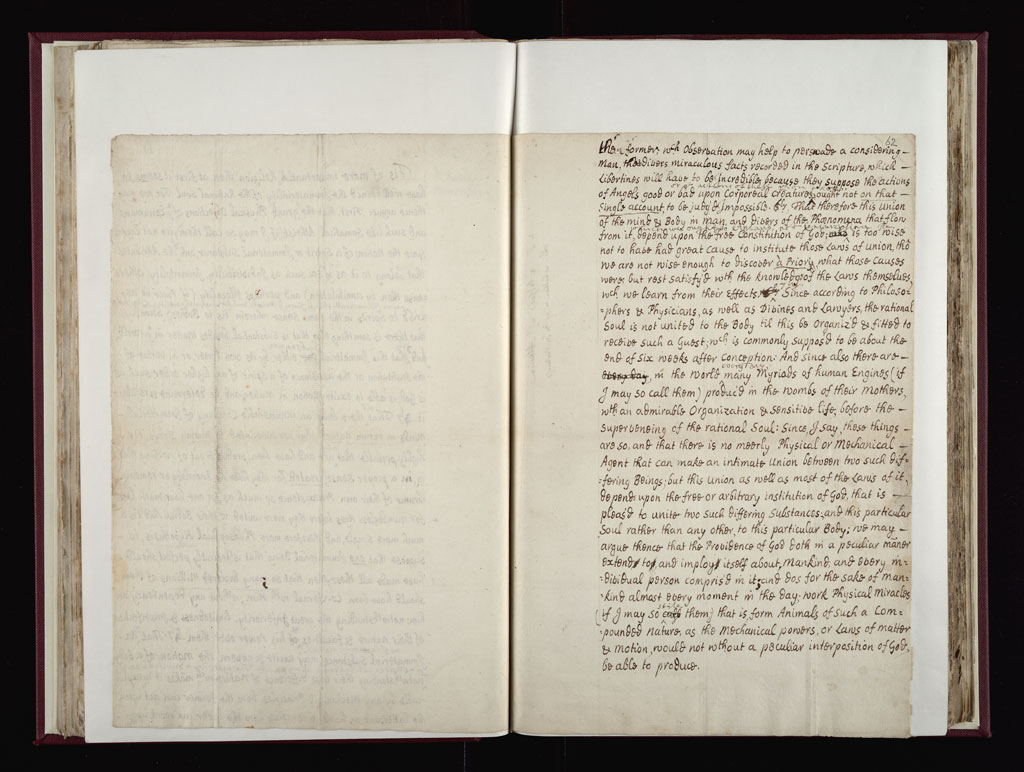 62
their former wth Observation may help to perswade a considering
Man, the divers miraculous facts recorded in the Scripture, which
Libertines will have to be Incredible, because they suppose the actions
of Angels good or bad upon Corporeal creatures, ought not on that
Single account to be judg'd Impossible. that therefore this Union
of the mind & Body in man, and divers of the Phænomena that flow
from it, depend upon the free Constitution of God, is too wise
not to have had great cause to institute those Laws of union, tho
we are not wise enough to discover a Priory, what those causes
were; but rest satisfy'd wth the knowledg of the Laws themselves,
wch we learn from their Effects. Since according to Philoso=
=phers & Physicians, as well as Divines and Lawyers, the rational
Soul is not united to the Body til this be Organiz'd & fitted to
receive such a Guest; wch is commonly suppos'd to be about the
end of Six weeks after conception: And since also there are
every day, in the world many Myriads of human Engines (if
I may so call them) produc'd in the wombs of their Mothers,
wth an admirable Organization & sensitive life, before the
superveneing of the rational Soul: Since, I say, these things
are so, and that there is no meerly Physical or Mechanical
Agent that can make an intimate Union between two such dif=
=fering Beings; but this union as well as most of the Laws of it,
depend upon the free or arbitrary institution of God, that is
pleas'd to unite two such differing Substances, and this particular
Soul rather than any other, to this particular Body; we may
argue thence that the Providence of God doth in a peculiar maner
extend to, and imploy itself about, Mankind, and every in=
=dividual person compris'd in it; and dos for the sake of man=
=kind almost every moment in the day, work Physical Miracles
(if I may so them) that is, form Animals of such a Com=
=pounded Nature, as the Mechanical powers, or Laws of matter
& motion, would not without a peculiar interposition of God,
be able to produce.